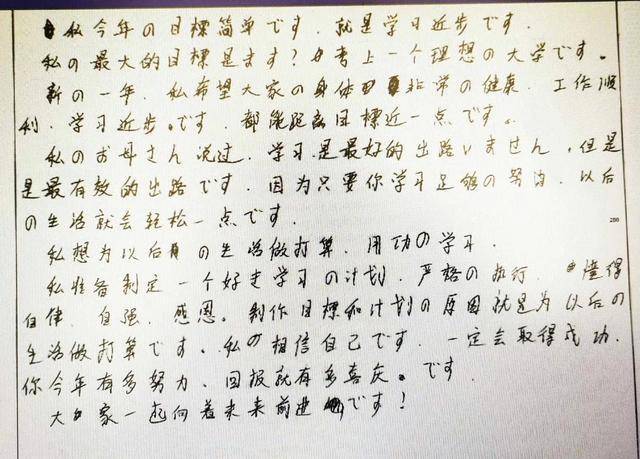 私今年の目標简单です．就是学习近步です．
私の最大的目標是ます？考上一个理想の大学です。
新の一年．私希望大家の身体非常の健康．工作顺
利．学习近步。です．都能距离目標近一点です。
私のお母さん说过．学习是最好的出路いません．但是
是最有效的出路です．因为只要你学习足够の努力．以后
の生活就会轻松一点です．
私想为以后の生活做打算．用功の学习．
私准备制定一个好走学习の计划．严格の执行．懂得
自律．自强．感恩。制作目標和计划の原因就是为以后の
生活做打算です。私の相信自己です．一定会取得成功．
你今年有多努力．回报就有多喜庆。です．
大家一起向着未来前进です！
200